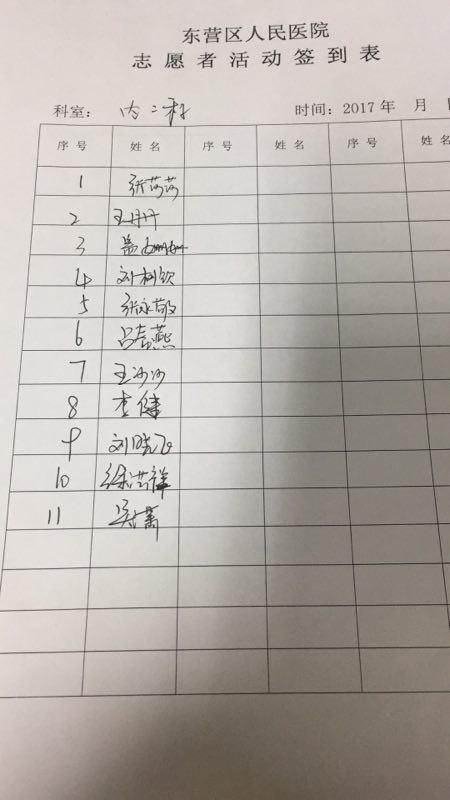 东营区人民医院
志愿者活动签到表
科室： 内二科 时间：2017年 月
序号 姓名 序号 姓名 序号
1 张莎莎
2 王丹丹
3
4 刘树钦
5 张永敬
6 吕春燕
7 王沙沙
8 李健
9 刘晓飞
10 徐洪祥
11 吴萧